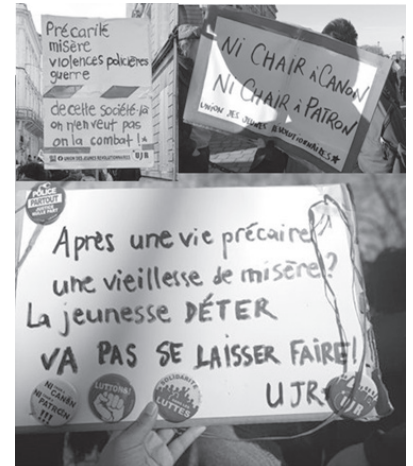 Précarité
misère
violences policières
guerre
de cette société-là
on n'en veut pas
on la combat !
UNION DES JEUNES RÉVOLUTIONNAIRES
UJR
NI CHAIR À CANON
NI CHAIR À PATRON
UNION DES JEUNES RÉVOLUTIONNAIRES
POLICE
PARTOUT
JUSTICE
NULLE PART
Après une vie précaire
une vieillesse de misère?
La jeunesse DÉTER
VA PAS SE LAISSER FAIRE!
UJR
NI
CANON
NI
PATRON
!!!
LUTTONS!
SOLIDARITÉ
LUTTES
UJR